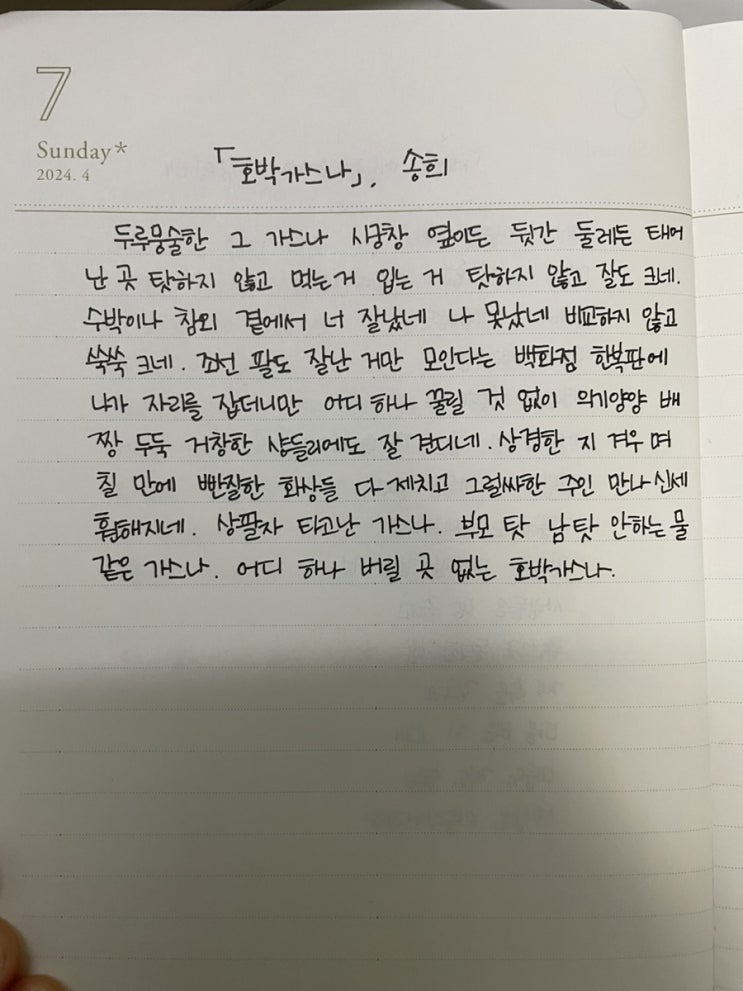 7
Sunday*
2024. 4
「호박가스나」, 송희
두루뭉술한 그 가스나 시궁창 옆이든 뒷간 둘레든 태어
난 곳 탓하지 않고 먹는거 입는 거 탓하지 않고 잘도 크네.
수박이나 참외 곁에서 너 잘났네 나 못났네 비교하지 않고
쑥쑥 크네. 조선 팔도 잘난 거만 모인다는 백화점 한복판에
나가 자리를 잡더니만 어디 하나 꿀릴 것 없이 의기양양 배
짱 두둑 거창한 샹들리에도 잘 견디네. 상경한 지 겨우 며
칠 만에 빤질한 화상들 다 제치고 그럴싸한 주인 만나 신세
훤해지네. 상팔자 타고난 가스나. 부모 탓 남 탓 안하는 물
같은 가스나. 어디 하나 버릴 곳 없는 호박가스나.